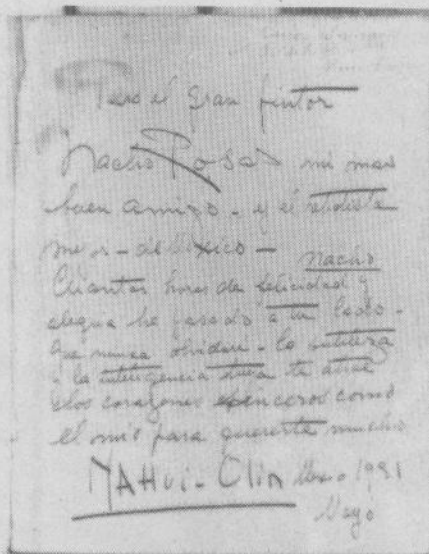 Para el gran pintor
Nacho Rosas mi mas
buen amigo - y el retratista
mejor - de Mexico -
Nacho
Cuantas horas de felicidad y
alegria he pasado a tu lado -
que nunca olvidare - la sutileza
la inteligencia tuya te atrae
los corazones sinceros como
el mio para quererte mucho
NAHui - Olin Mexico 1981
Mayo